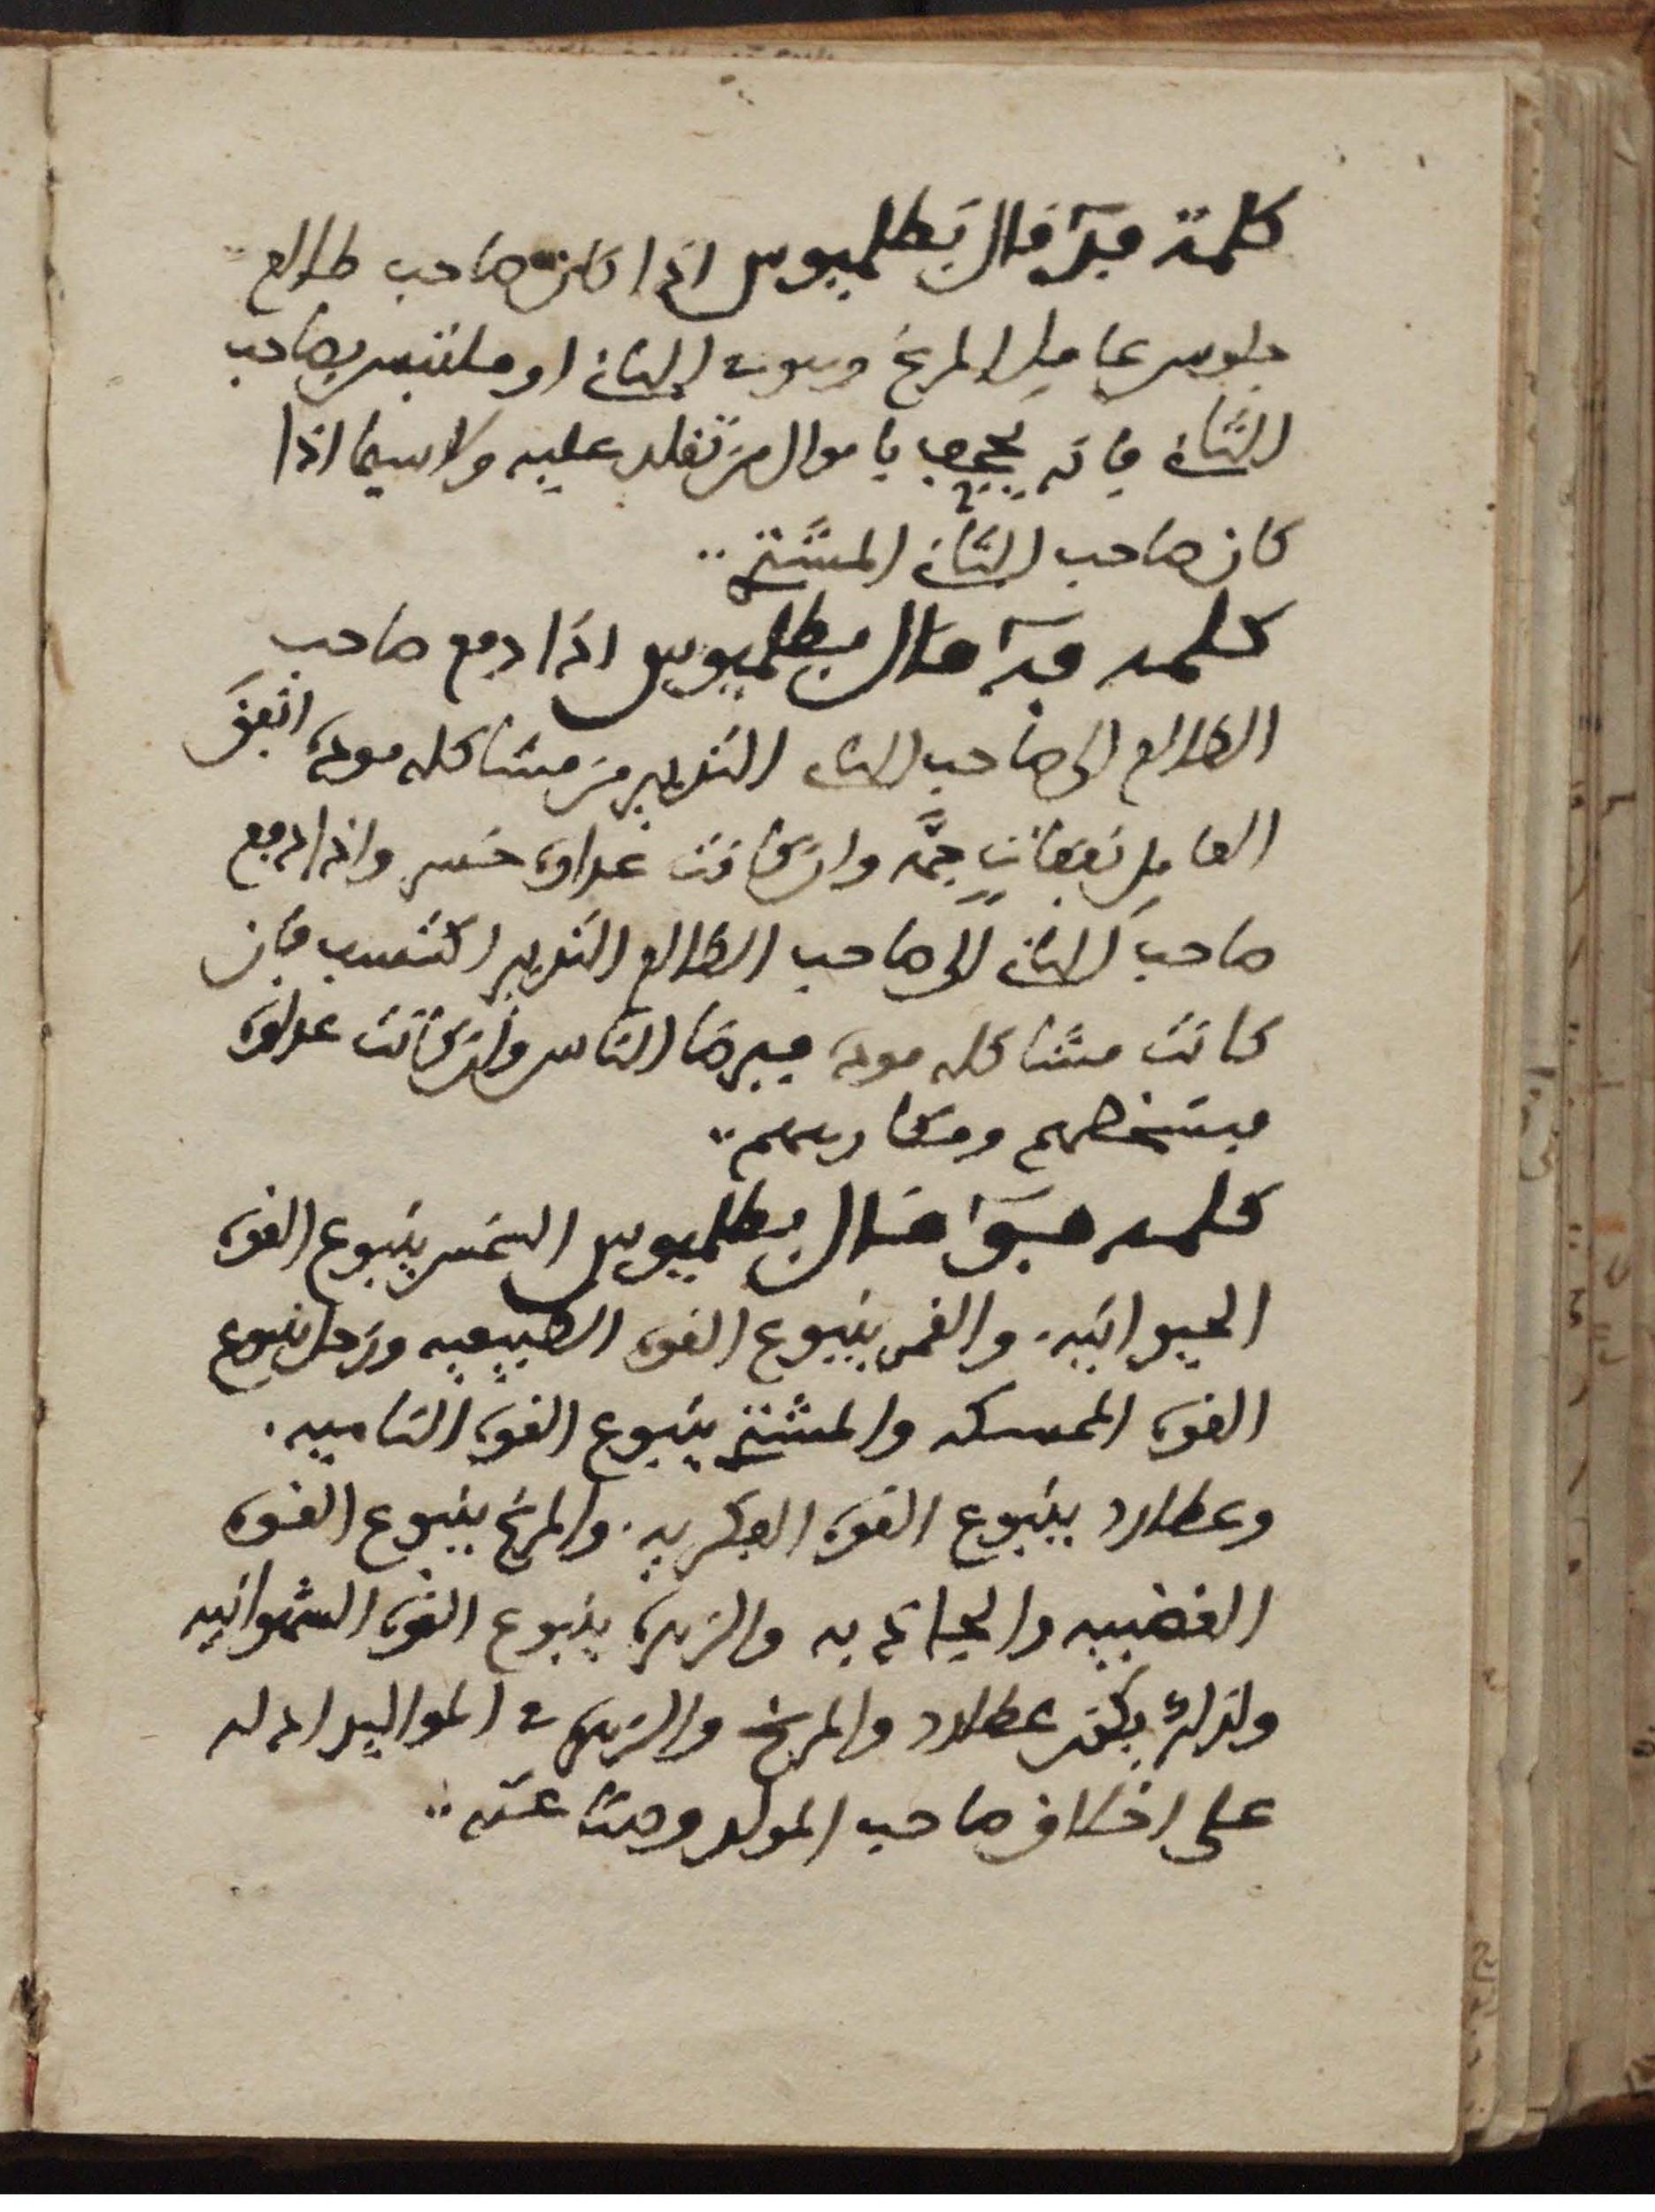 كلمة فد قال بطلميوس اذا كان صاحب طالع
جلوس عامل المريخ وهو في الثاني او ملتبس بصاحب
الثاني فانه يجحف باموال من تقلد عليه ولا سيما اذا
كان صاحب الثاني المشتري
كلمه فه قال بطلميوس اذا دفع صاحب
الطالع الى صاحب الثاني التدبير من مشاكله موده انفق
العامل نفقات جمة وان كانت عداوه خسر واذا دفع
صاحب الثاني الى صاحب الطالع التدبير اكتسب فان
كانت مشاكله موده فبرضا الناس وان كانت عداوه
فبسخطهم ومكارههم
كلمه فو قال بطلميوس الشمس ينبوع القوه
الحيوانيه. والقمر ينبوع القوه الطبيعيه وزحل ينبوع
القوه الممسكه والمشتري ينبوع القوه الناميه.
وعطارد ينبوع القوه الفكريه. والمريخ ينبوع القوه
الغضبيه والجاذبه والزهره ينبوع القوه الشهوانيه
ولذلك يكون عطارد والمريخ والزهره في المواليد ادله
على اخلاق صاحب المولد وصناعته